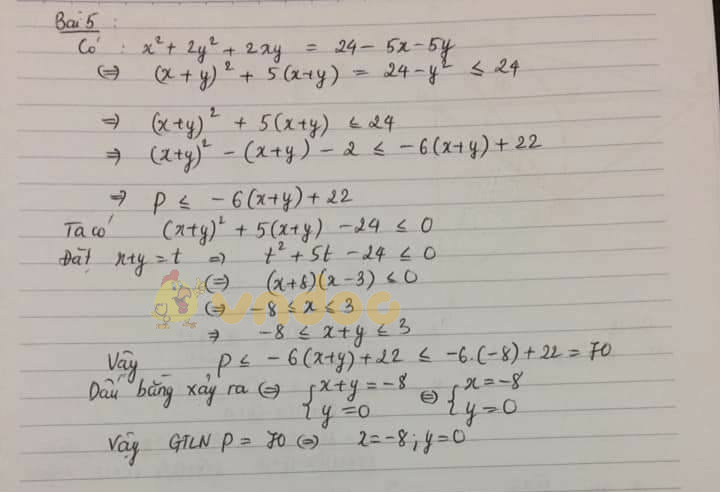 Bài 5 :
Có : x² + 2y² + 2xy = 24 - 5x - 5y
⇔ (x + y)² + 5(x+y) = 24 - y² ≤ 24
⇒ (x+y)² + 5(x+y) ≤ 24
⇒ (x+y)² - (x+y) - 2 ≤ -6(x+y) + 22
⇒ P ≤ -6(x+y) + 22
Ta có (x+y)² + 5(x+y) - 24 ≤ 0
Đặt x+y = t ⇒ t² + 5t - 24 ≤ 0
⇔ (x+8)(x-3) ≤ 0
⇔ -8 ≤ x ≤ 3
⇒ -8 ≤ x+y ≤ 3
vndoc
Vậy P ≤ -6(x+y) + 22 ≤ -6.(-8) + 22 = 70
Dấu bằng xảy ra ⇔ { x+y = -8 ; y = 0 ⇔ { x = -8 ; y = 0
Vậy GTLN P = 70 ⇔ x = -8 ; y = 0